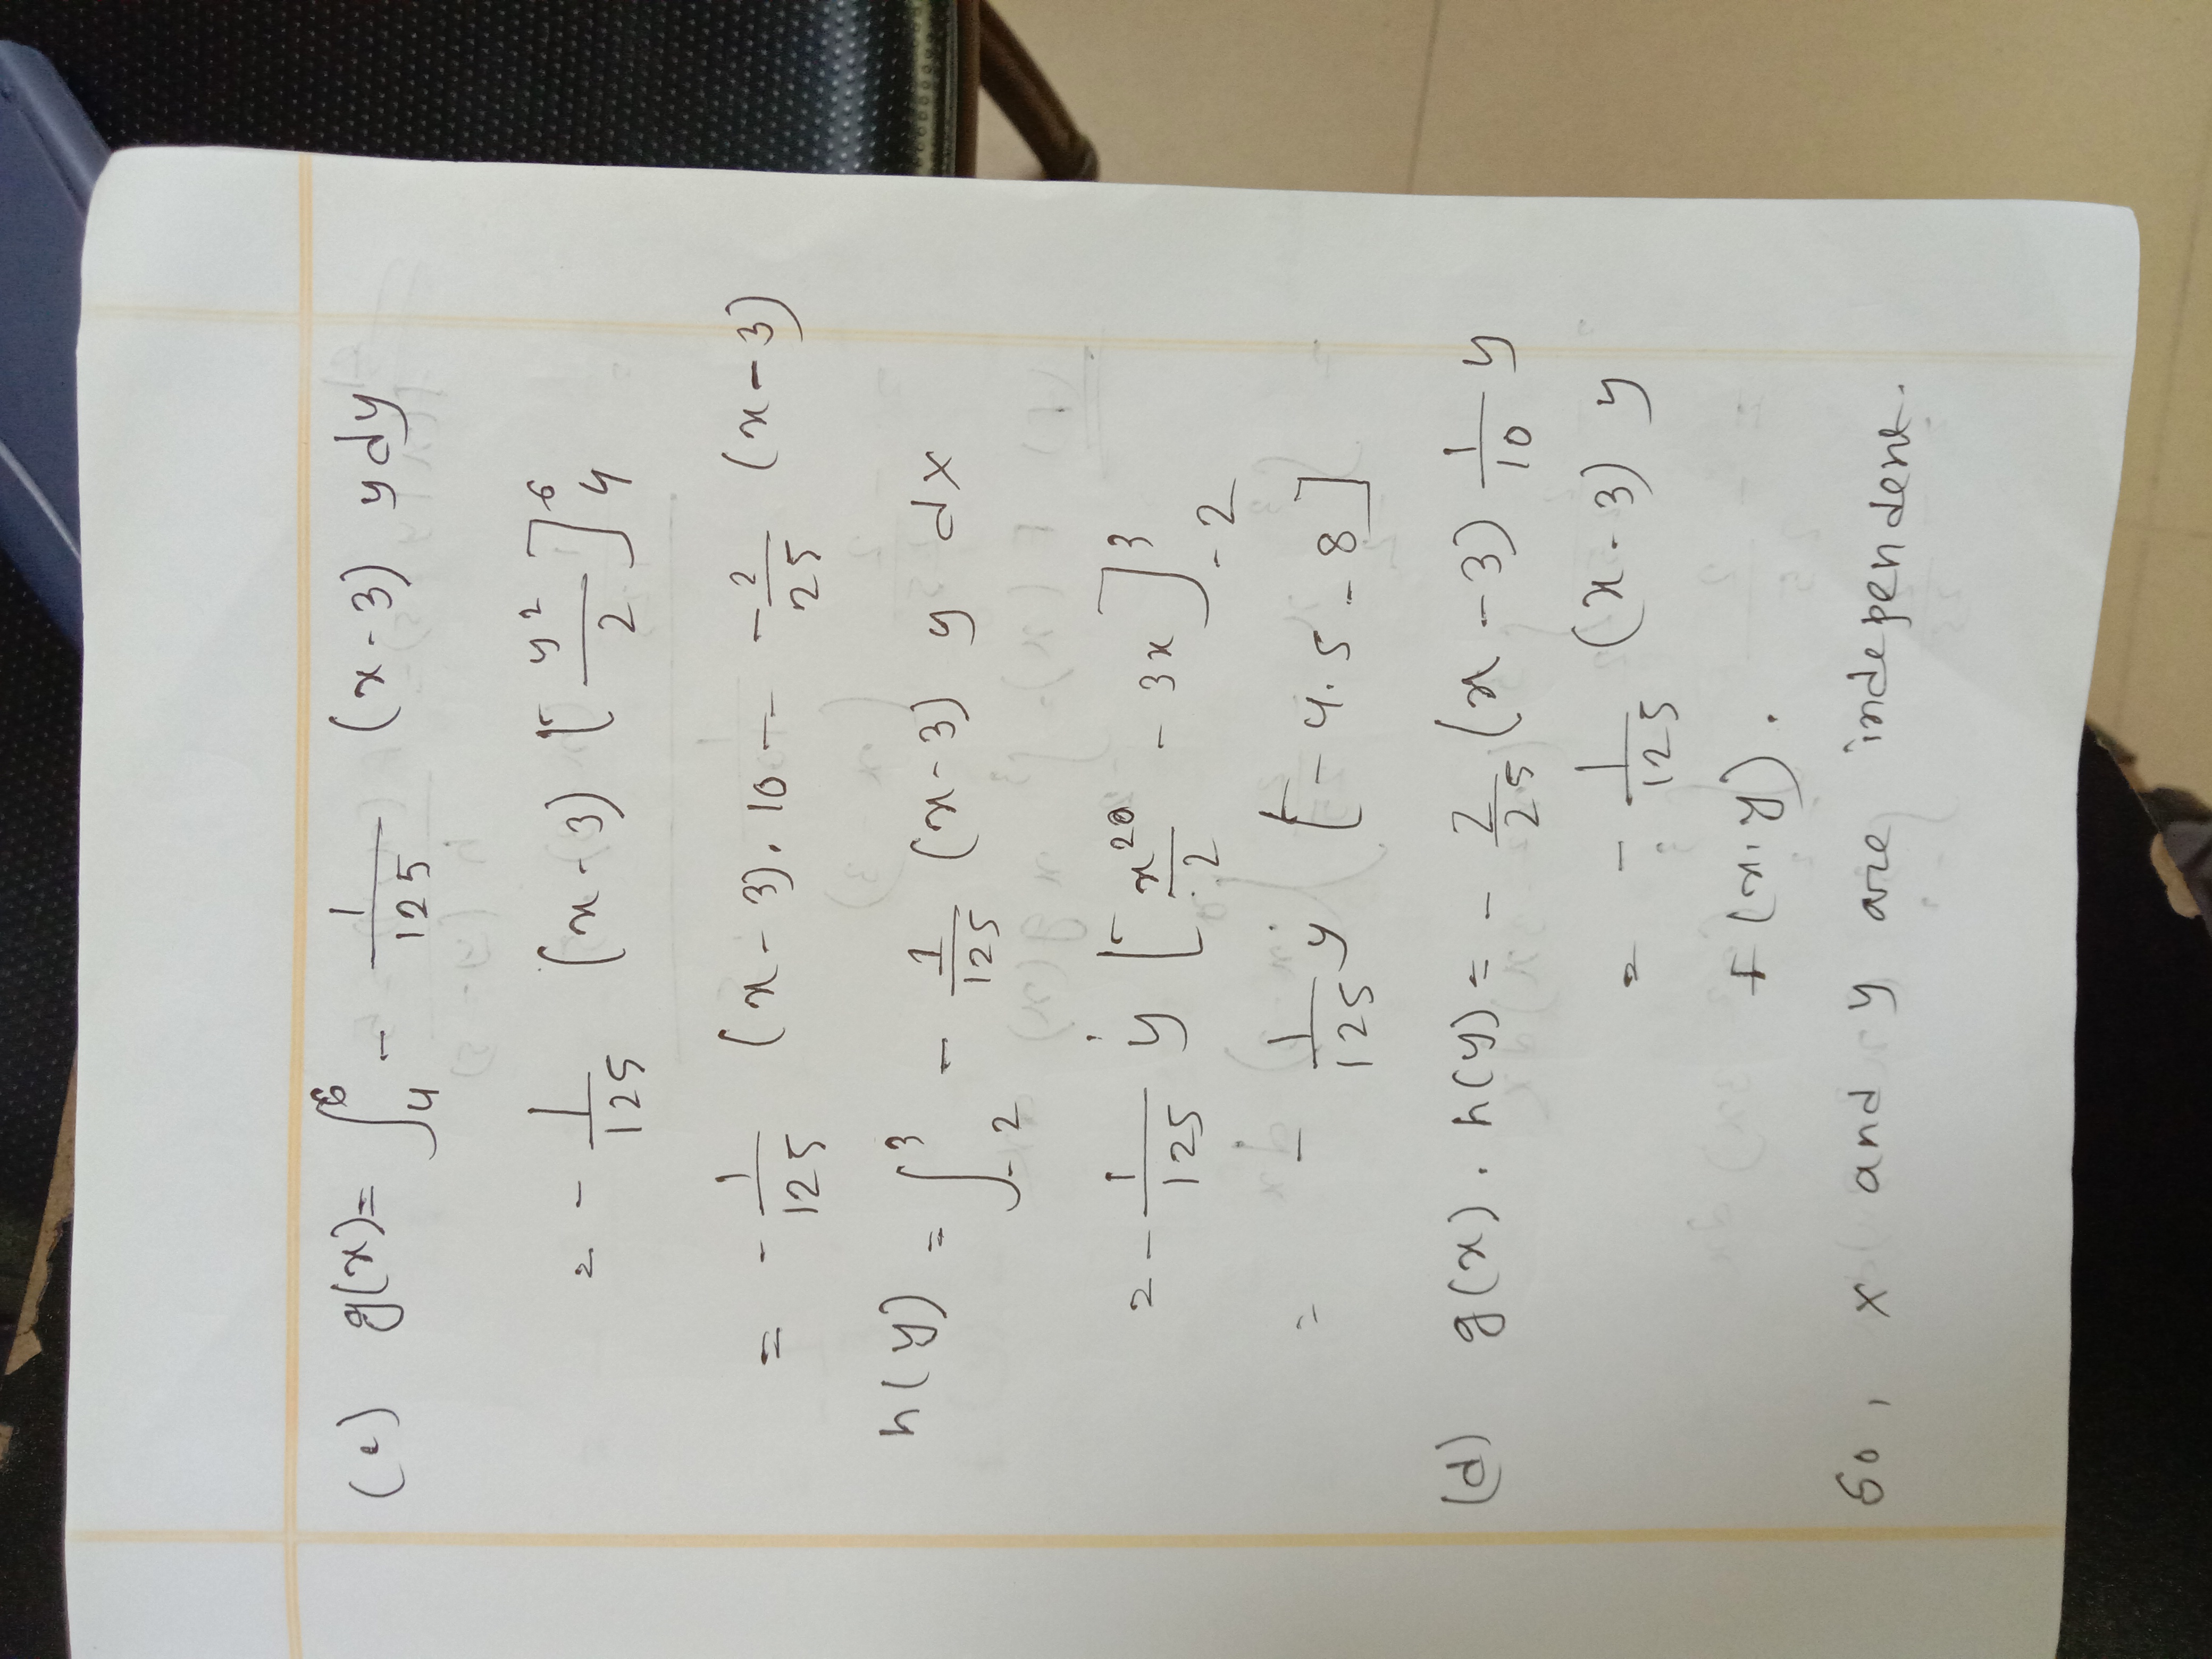 (c) g(x) = ∫₄⁶ - 1/125 (x-3) y dy
= - 1/125 (x-3) [y²/2]₄⁶
= - 1/125 (x-3). 10 = - 2/25 (x-3)
h(y) = ∫₋₂³ - 1/125 (x-3) y dx
= - 1/125 y [x²/2 - 3x]₋₂³
= - 1/125 y [-4.5 - 8]
(d) g(x) . h(y) = - 2/25 (x-3) 1/10 y
= - 1/125 (x-3) y
f(x,y).
So, x and y are independent.